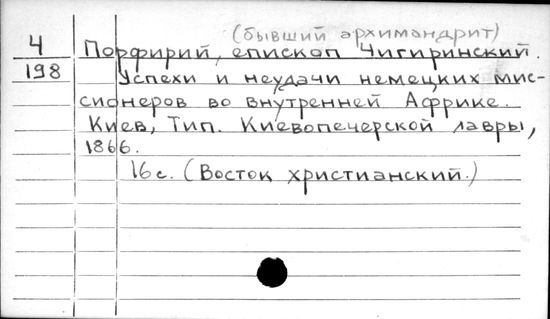 (бывший архимандрит)
4 Порфирий, епископ Чигиринский.
198 Успехи и неудачи немецких мис-
сионеров во внутренней Африке.
Киев, Тип. Киевопечерской лавры,
1866.
16 с. (Восток христианский.)